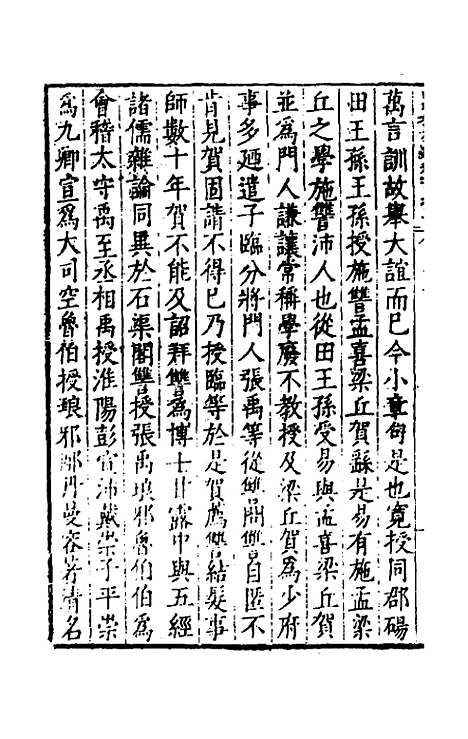 萬言訓故舉大誼而已今小章句是也寬授同郡碭
田王孫王孫授施讐孟喜梁丘賀繇是易有施孟梁
丘之學施讐沛人也從田王孫受易與孟喜梁丘賀
並爲門人謙讓常稱學廢不敎授及梁丘賀爲少府
事多廼遣子臨分將門人張禹等從讐問讐自匿不
肯見賀固請不得已乃授臨等於是賀薦讐結髮事
師數十年賀不能及詔拜讐爲博士甘露中與五經
諸儒雜論同異於石渠閣讐授張禹琅邪魯伯伯爲
會稽太守禹至丞相禹授淮陽彭宣沛戴崇子平崇
爲九卿宣爲大司空魯伯授琅邪邴丹曼容著清名